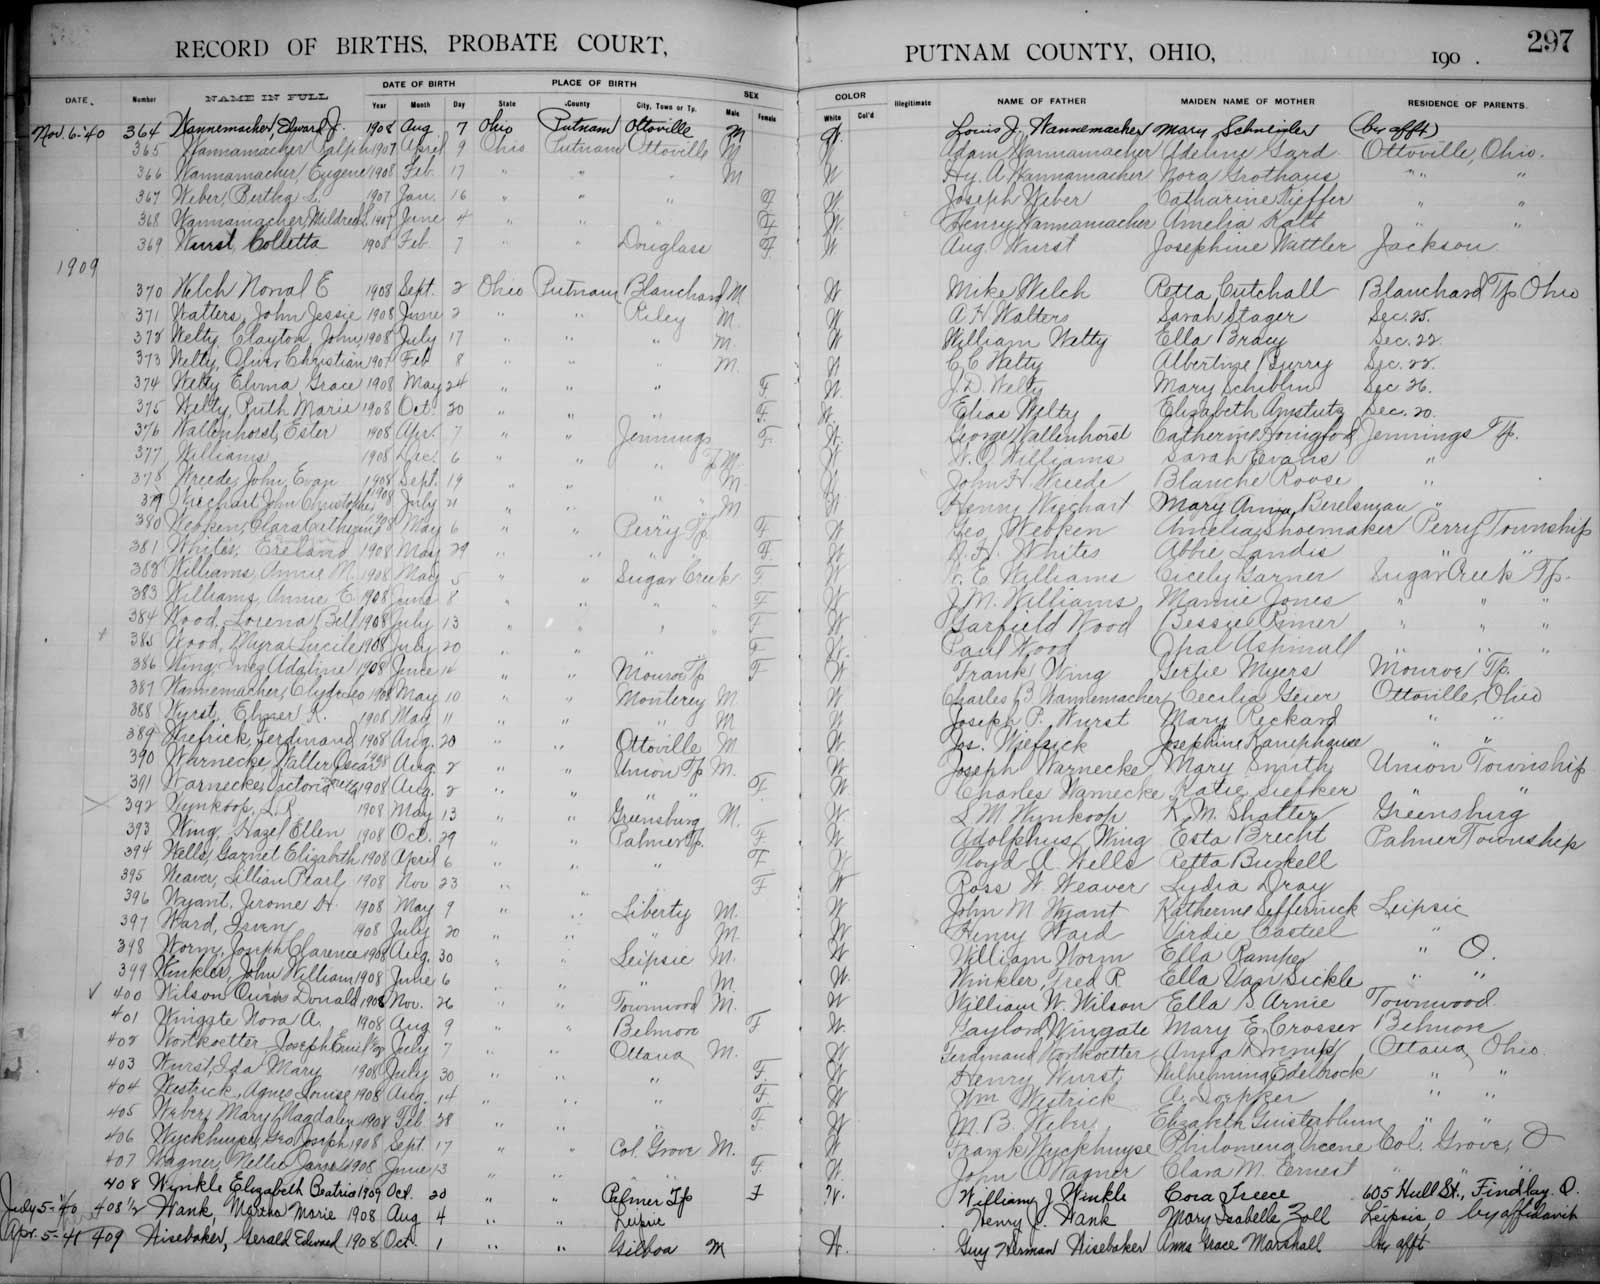 RECORD OF BIRTHS, PROBATE COURT, PUTNAM COUNTY, OHIO, 190 . 297
DATE OF BIRTH PLACE OF BIRTH SEX COLOR
DATE. Number NAME IN FULL Year Month Day State County City, Town or Tp. Male Female White Col'd Illegitimate NAME OF FATHER MAIDEN NAME OF MOTHER RESIDENCE OF PARENTS.
Nov. 6-'40 364 Wannemacher, Edward J. 1908 Aug 7 Ohio Putnam Ottoville M W. Louis J. Wannemacher Mary (by afft)
365 Wannamacher Ralph 1907 April 9 Ohio Putnam Ottoville M W. Adam Wannamacher Adeline Gard Ottoville, Ohio.
366 Wannamacher, Eugene 1908 Feb. 17 " " " M W Hy. A. Wannamacher Nora Grothaus " " "
367 Weber, Bertha L. 1907 Jan. 16 " " " F W Joseph Weber Catharine Kieffer " "
368 Wannamacher, Mildred 1907 June 4 " " " F W. Henry Wannamacher Amelia Katt " "
369 Wurst, Colletta 1908 Feb. 7 " " Douglass F. W Aug. Wurst Josephine Wattler Jackson
1909
370 Welch Norval E 1908 Sept. 2 Ohio Putnam Blanchard M W Mike Welch Retta Cutchall Blanchard Tp Ohio
371 Watters, John Jessie 1908 June 2 " " Riley M. W A. H Walters Sarah Stager Sec. 25.
372 Welty, Clayton John 1908 July 17 " " " M. W William Welty Ella Bracy Sec. 22
373 Welty, Oliver Christian 1907 Feb 8 " " " M. W C. C Welty Albertine Burry Sec. 22.
374 Welty Elvina Grace 1908 May 24 " " " F. W. J. D. Welty Mary Sec 26.
375 Welty, Ruth Marie 1908 Oct. 20 " " " F. W. Elias Welty Elizabeth Amstutz Sec. 20.
376 Wallenhorst, Ester 1908 Apr. 7 " " Jennings F W. George Wallenhorst Catherine Honigford Jennings Tp.
377 Williams 1908 Dec. 6 " " " Tp M. W Williams Sarah Evans "
378 Wreede, John, Evan 1908 Sept. 19 " " " M. W John H Wreede Blanche Roose "
379 Wiechart John Christopher 1908 July 21 " " " M W Henry Wiechart Mary Anna Berelsman "
380 Webken, Clara Catherine 1908 May 6 " " Perry Tp. F W Geo Webken Amelia Shoemaker Perry Township
381 Whites, Ereland 1908 May 29 " " " F. W Whites Abbie Landis " "
382 Williams, Annie M. 1908 May 5 " " Sugar Creek F W E Williams Cicely Garner Sugar Creek Tp.
383 Williams, Annie E. 1908 June 8 " " " F W J. M. Williams Mamie Jones " " "
384 Wood, Lorena Bell 1908 July 13 " " " F W Garfield Wood Bessie Rimer " " "
385 Wood, Myra Lucile 1908 July 20 " " " F W. Paul Wood Opal Ashmall " " "
386 Wing, Inez Adaline 1908 June 14 " " Monroe Tp F W Frank Wing Gertie Myers Monroe Tp.
387 Wannemacher, Clyde 1908 May 10 " " Monterey M. W Charles B Wannemacher Cecilia Geier Ottoville, Ohio
388 Wurst, Elmer R. 1908 May 11 " " " M W Joseph P. Wurst Mary Reckard " "
389 Ferdinand 1908 Aug. 20 " " Ottoville M W. Jos. Josephine Kamphouse " "
390 Warnecke Walter Oscar 1908 Aug 2 " " Union Tp M. W Joseph Warnecke Mary Smith Union Township
391 Warnecke, Victoria 1908 Aug. 2 " " " F. W Charles Warnecke Katie Siefker " "
392 Wynkoop, L. R. 1908 May 13 " " Greensburg M. W L M Wynkoop K. M. Shatter Greensburg
393 Wing, Hazel Ellen 1908 Oct. 29 " " Palmer Tp. F W Adolphus Wing Esta Brecht Palmer Township
394 Wells, Garnet Elizabeth 1908 April 6 " " " F W Floyd A. Wells Retta Buskell
395 Weaver, Lillian Pearl 1908 Nov. 23 " " F W Ross W. Weaver Lydia Dray
396 Wyant, Jerome H. 1908 May 9 " " Liberty M. W John M Wyant Katherine Leipsic
397 Ward, Irven 1908 July 20 " " " M. W Henry Ward Virdie Casteel "
398 Worm, Joseph Clarence 1908 Aug. 30 " " Leipsic M. W William Worm Ella Kamper " O.
399 Winkler, John William 1908 June 6 " " " M. W. Winkler, Fred R. Ella Van Sickle " "
400 Wilson Donald 1908 Nov. 26 " " Townwood M. W William W. Wilson Ella S Arnie Townwood
401 Wingate Nora A. 1908 Aug 9 " " Belmore F W. Gaylord Wingate Mary E. Crosser Belmore
402 Wortkoetter Joseph Emil July 7 " " Ottawa M. W Ferdinand Wortkoetter Anna Ottawa, Ohio.
403 Wurst, Ida Mary 1908 July 30 " " " F. W Henry Wurst Wilhelmina Edelbrock " "
404 Westrick, Agnes Louise 1908 Aug. 14 " " " F. W Wm Westrick A. " "
405 Weber, Mary Magdalen 1908 Feb 28 " " " F W M. B. Weber Elizabeth " "
406 Wyckhuyse, Geo Joseph 1908 Sept. 17 " " Col. Grove M. W Frank Wyckhuyse Philomena Col. Grove, O
407 Wagner, Nellie 1908 June 13 " " F. W. John O Wagner Clara M. Ernest " "
408 Winkle Elizabeth Beatrice 1909 Oct. 20 " " Palmer Tp F W. William J. Winkle Cora Treece 605 Hull St., Findlay. O.
July 5-'40 408 1/2 Hank, Martha Marie 1908 Aug 4 " " Leipsic Henry J. Hank Mary Isabelle Zoll Leipsic, O by affidavit
Apr. 5-'41 409 Wisebaker, Gerald Edward 1908 Oct. 1 " " Gilboa M W. Guy Herman Wisebaker Anna Grace Marshall by afft